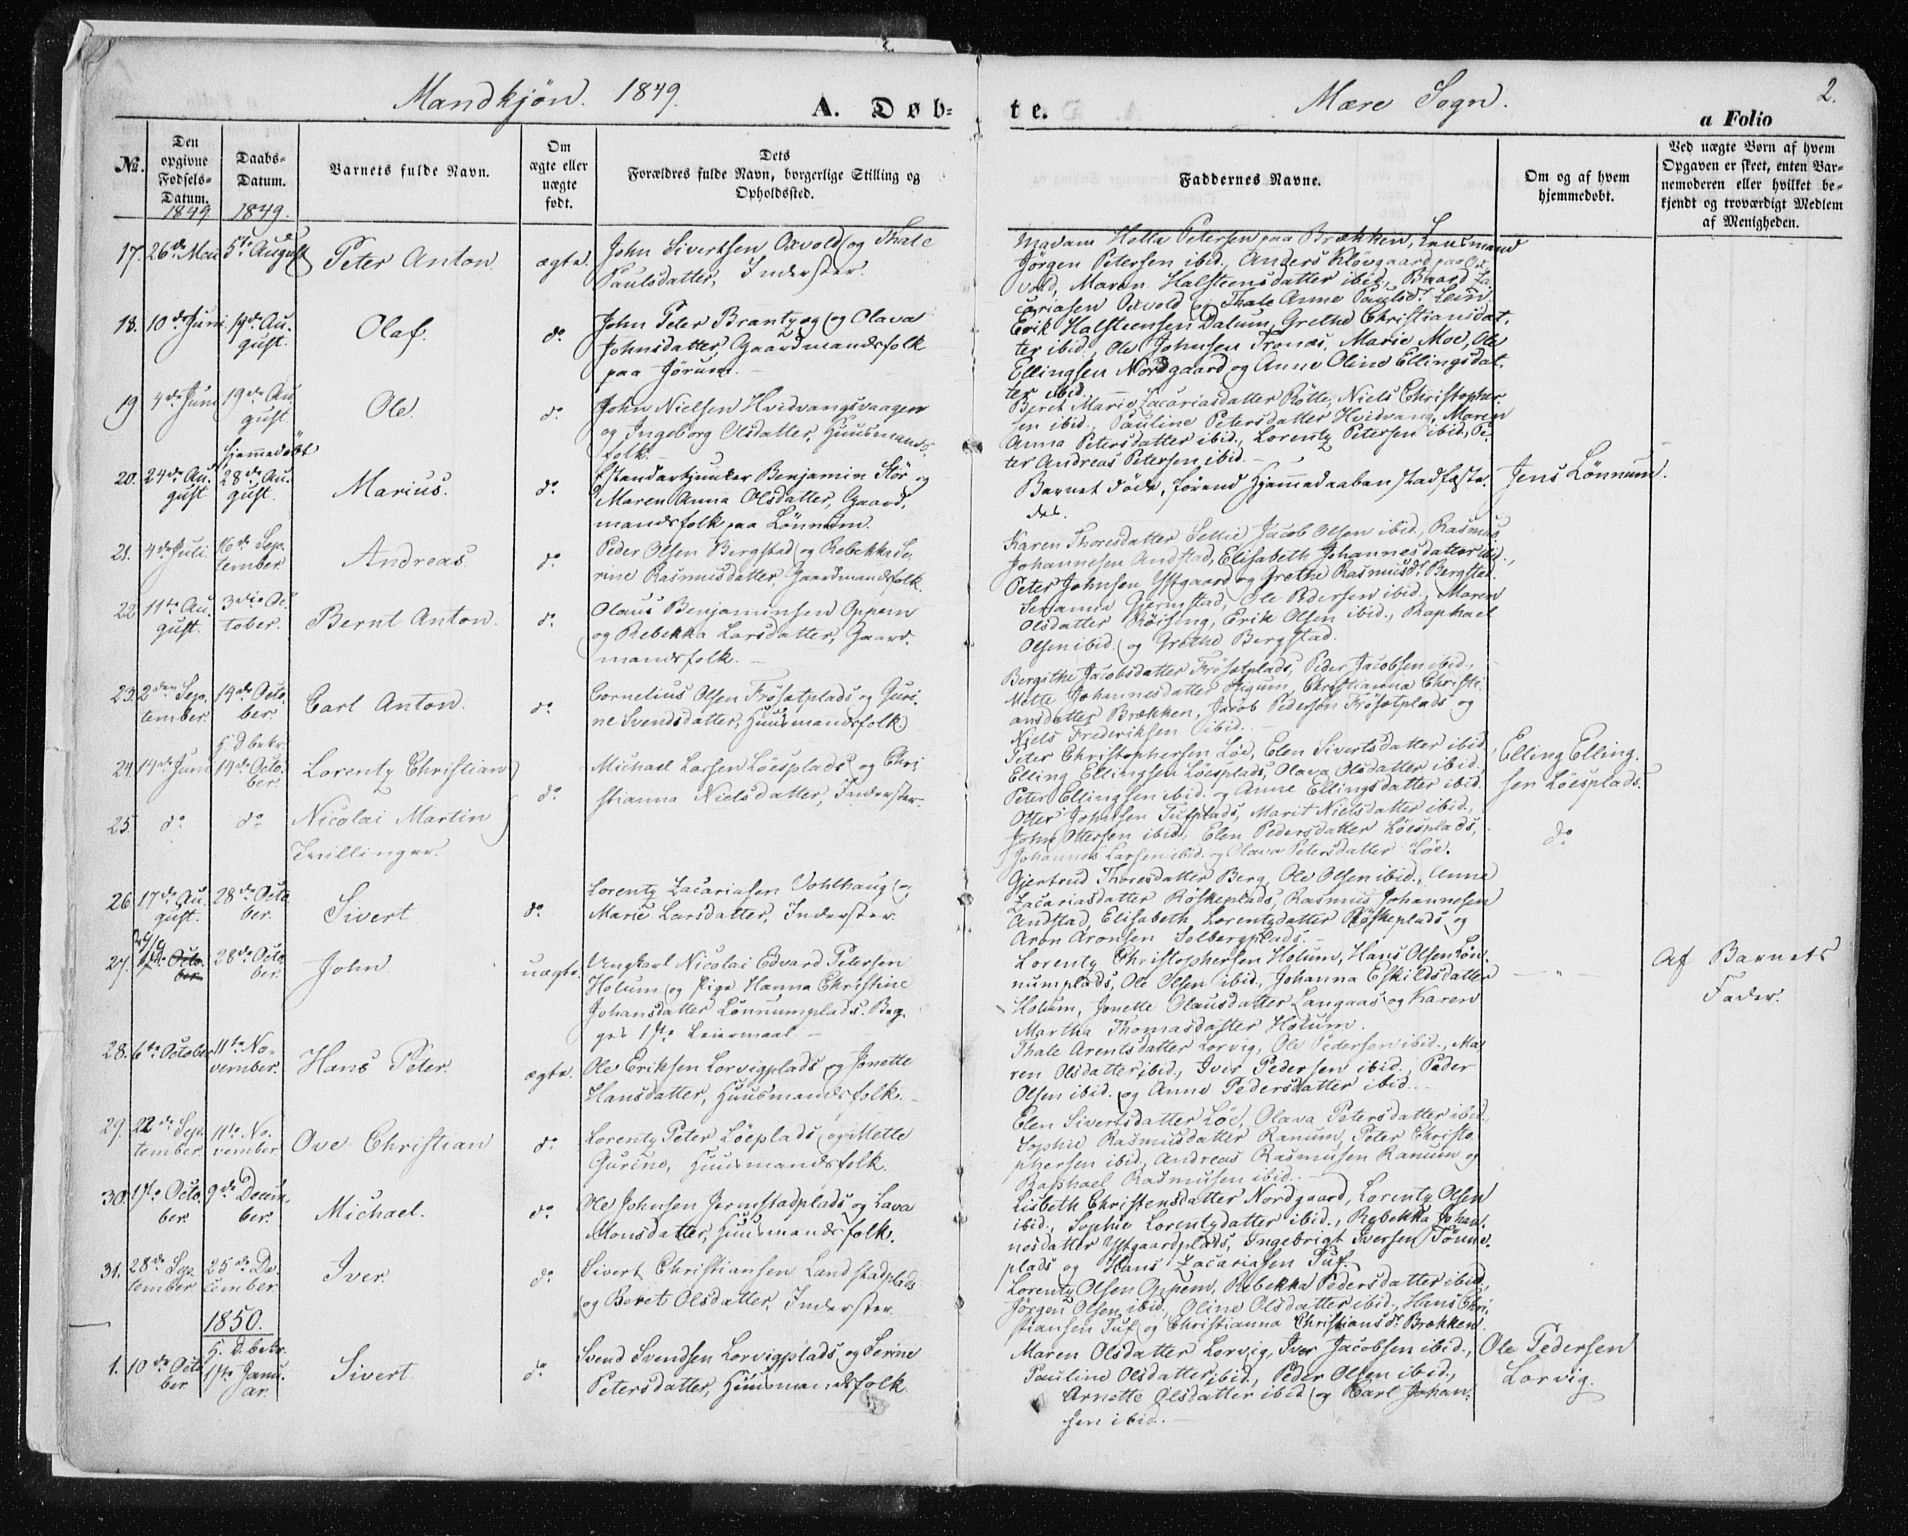 Mandkjøn. 1849.
A. Døb-
te.
Mære Sogn.
2.
a Folio
No.
Den opgivne Fødsels-Datum.
1849
Daabs-Datum.
1849.
Barnets fulde Navn.
Om ægte eller uægte født.
Dets Forældres fulde Navn, borgerlige Stilling og Opholdssted.
Faddernes Navne.
Om og af hvem hjemmedøbt.
Ved uægte Børn af hvem Opgaven er skeet, enten Barnemoderen eller hvilket bekjendt og troværdigt Medlem af Menigheden.
17. 26de Mai 5te August Peter Anton ægte.
John Sivertsen Oxvold og Thale
Paulsdatter, Inderster.
Madam Hetta Petersen paa Brækken, Lensmand
Jørgen Petersen ibid., Anders Kløvgaard paa Ox
vold, Maren Halsteensdatter ibid., Baard Za-
cariasen Oxvold og Thale Anne Paulsdr Lein
18. 10de Juni 19de Au-
gust. Olaf. do
John Peter Brantzæg og Olava
Johnsdatter, Gaardmandsfolk
paa Jørum.
Erik Halsteensen Dalum, Grethe Christiansdat-
ter ibid., Ole Johnsen Tronæs, Marie Moe, Ole
Ellingsen Nordgaard og Anne Oline Ellingsdat-
ter ibid.
19 4de Juni 19de Au-
gust. Ole. do
John Nielsen Hvidvangsvaagen
og Ingeborg Olsdatter, Huusmands-
folk.
Beret Marie Zacariasdatter Rötte, Niels Christopher-
sen ibid., Pauline Petersdatter Hvidvang, Maren
Anna Petersdatter ibid., Lorentz Petersen ibid, Pe-
ter Andreas Petersen ibid.
hjemmedöbt
20. 24de Au-
gust 28de Au-
gust. Marius. do
Standartjunker Benjamin Stör og
Maren Anna Olsdatter, Gaard-
mandsfolk paa Lönnum.
Barnet döde, förend Hjemmedaaben stadfæste-
des.
Jens Lönnum.
21. 4de Juli. 16de Sep-
tember Andreas. do
Peder Olsen Bergstad og Rebekka Se-
rine Rasmusdatter, Gaardmandsfolk.
Karen Thoresdatter Sellie, Jacob Olsen ibid., Rasmus
Johannesen Andstad, Elisabeth Johannesdatter ibid.,
Peter Johnsen Ystgaard og Grethe Rasmusdr Bergstad.
22 11te Au-
gust. 3die Oc-
tober. Bernt Anton. do
Olaus Benjaminsen Oppem
og Rebekka Larsdatter, Gaard-
mandsfolk.
Serianna Gjerngstad, Ole Pedersen ibid., Maren
Olsdatter Röising, Erik Olsen ibid., Raphael
Olsen ibid. og Grethe Bergstad.
23. 2den Sep-
tember. 14de Octo-
ber. Carl Anton. do
Cornelius Olsen Frösetplads og Guri-
ne Svendsdatter, Huusmandsfolk
Bergithe Jacobsdatter Frösetplads, Peder Jacobsen ibid.,
Mette Johannesdatter Gigum, Christianna Christi-
ansdatter Brækken, Jacob Pedersen Frösetplads og
Niels Frederiksen ibid.
H. D. bekr.
24. 14de Juni 14de Octo-
ber. Lorentz Christian
do
Michael Larsen Löesplads og Chri-
stianna Nielsdatter, Inderster.
Peter Christophersen Löe, Elen Sivertsdatter ibid.,
Elling Ellingsen Löesplads, Olava Olsdatter ibid.,
Peter Ellingsen ibid. og Anne Ellingsdatter ibid.
Elling Elling-
sen Löesplads.
25. do do Nicolai Martin
Tvillinger.
Otter Johnsen Tufplads, Marit Nielsdatter ibid.,
John Ottersen ibid., Elen Pedersdatter Löesplads,
Johannes Larsen ibid. og Olava Petersdatter Löe.
do
26 17de Au-
gust. 28de Octo-
ber. Sivert do.
Lorentz Zacariasen Vohlhaug og
Marie Larsdatter, Inderster.
Gjertrud Thoresdatter Berg, Ole Olsen ibid., Anne
Zacariasdatter Röskeplads, Rasmus Johannesen
Andstad, Elisabeth Lorentzdatter Röskeplads og
Aron Aronsen Solbergplads.
27. Octo-
ber 28de Octo-
ber. John uægte.
Ungkarl Nicolai Edvard Petersen
Holum og Pige Hanna Christine
Johansdatter Lönnumplads. Beg-
ges 1ste Leiermaal
Lorentz Christophersen Holum, Hans Olsen Lön-
numplads, Ole Olsen ibid., Johanna Eskildsdatter
Holum, Jonette Olausdatter Langaas og Karen
Martha Thomasdatter Holum.
— " —
Af Barnets
Fader.
28. 6te October 11te No-
vember. Hans Peter. ægte.
Ole Eriksen Lorvigplads og Jonette
Hansdatter, Huusmandsfolk.
Thale Arentsdatter Lorvig, Ole Pedersen ibid., Ma-
ren Olsdatter ibid., Iver Pedersen ibid., Peder
Olsen ibid. og Anne Pedersdatter ibid.
29. 22de Sep-
tember. 11te No-
vember. Ove Christian do
Lorentz Peter Löeplads og Mette
Gurine, Huusmandsfolk.
Elen Sivertsdatter Löe, Olava Petersdatter ibid.,
Sophie Rasmusdatter Ranum, Peter Christo-
phersen ibid., Andreas Rasmusen Ranum og
Raphael Rasmusen ibid.
30. 17de Octo-
ber. 9de Decem-
ber. Michael. do
Ole Johnsen Jermstadplads og Lava
Monsdatter, Huusmandsfolk.
Lisbeth Christensdatter Nordgaard, Lorentz Olsen
ibid., Sophie Lorentzdatter ibid., Rebekka Johan-
nesdatter Ystgaardplads, Ingebrigt Iversen Tönne-
plads og Hans Zacariasen Tuf.
31. 28de Sep-
tember 25de De-
cember. Iver. do
Sivert Christiansen Landstadplads
og Beret Olsdatter, Inderster.
Lorentz Olsen Oppem, Rebekka Pedersdatter ibid.,
Jörgen Olsen ibid., Oline Olsdatter ibid., Hans Chri-
stiansen Tuf og Christianna Christiansdr Brækken.
1850.
H. D. bekr.
1. 10de Octo-
ber 1ste Janu-
ar. Sivert. do
Svend Svendsen Lorvigplads og Serine
Petersdatter, Huusmandsfolk
Maren Olsdatter Lorvig, Iver Jacobsen ibid.,
Pauline Olsdatter ibid., Peder Olsen ibid.,
Arnette Olsdatter ibid og Karl Johan-
sen ibid.
Ole Pedersen
Lorvig.